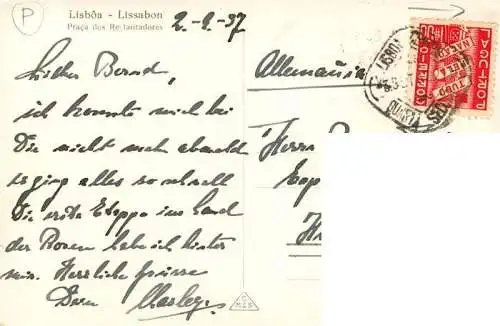 P
Lisbôa - Lissabon
Praça dos Restauradores
2-9-37
Lieber Bernd,
ich konnte mich bei
Dir nicht mehr abmelden
es ging alles so schnell
Die erste Etappe ins Land
der Rosen habe ich hinter
mir. Herzliche Grüsse
Dein
Allemania
Herrn
LISBOA
TUDO PELA NAÇÃO
PORTUGAL
CORREIO